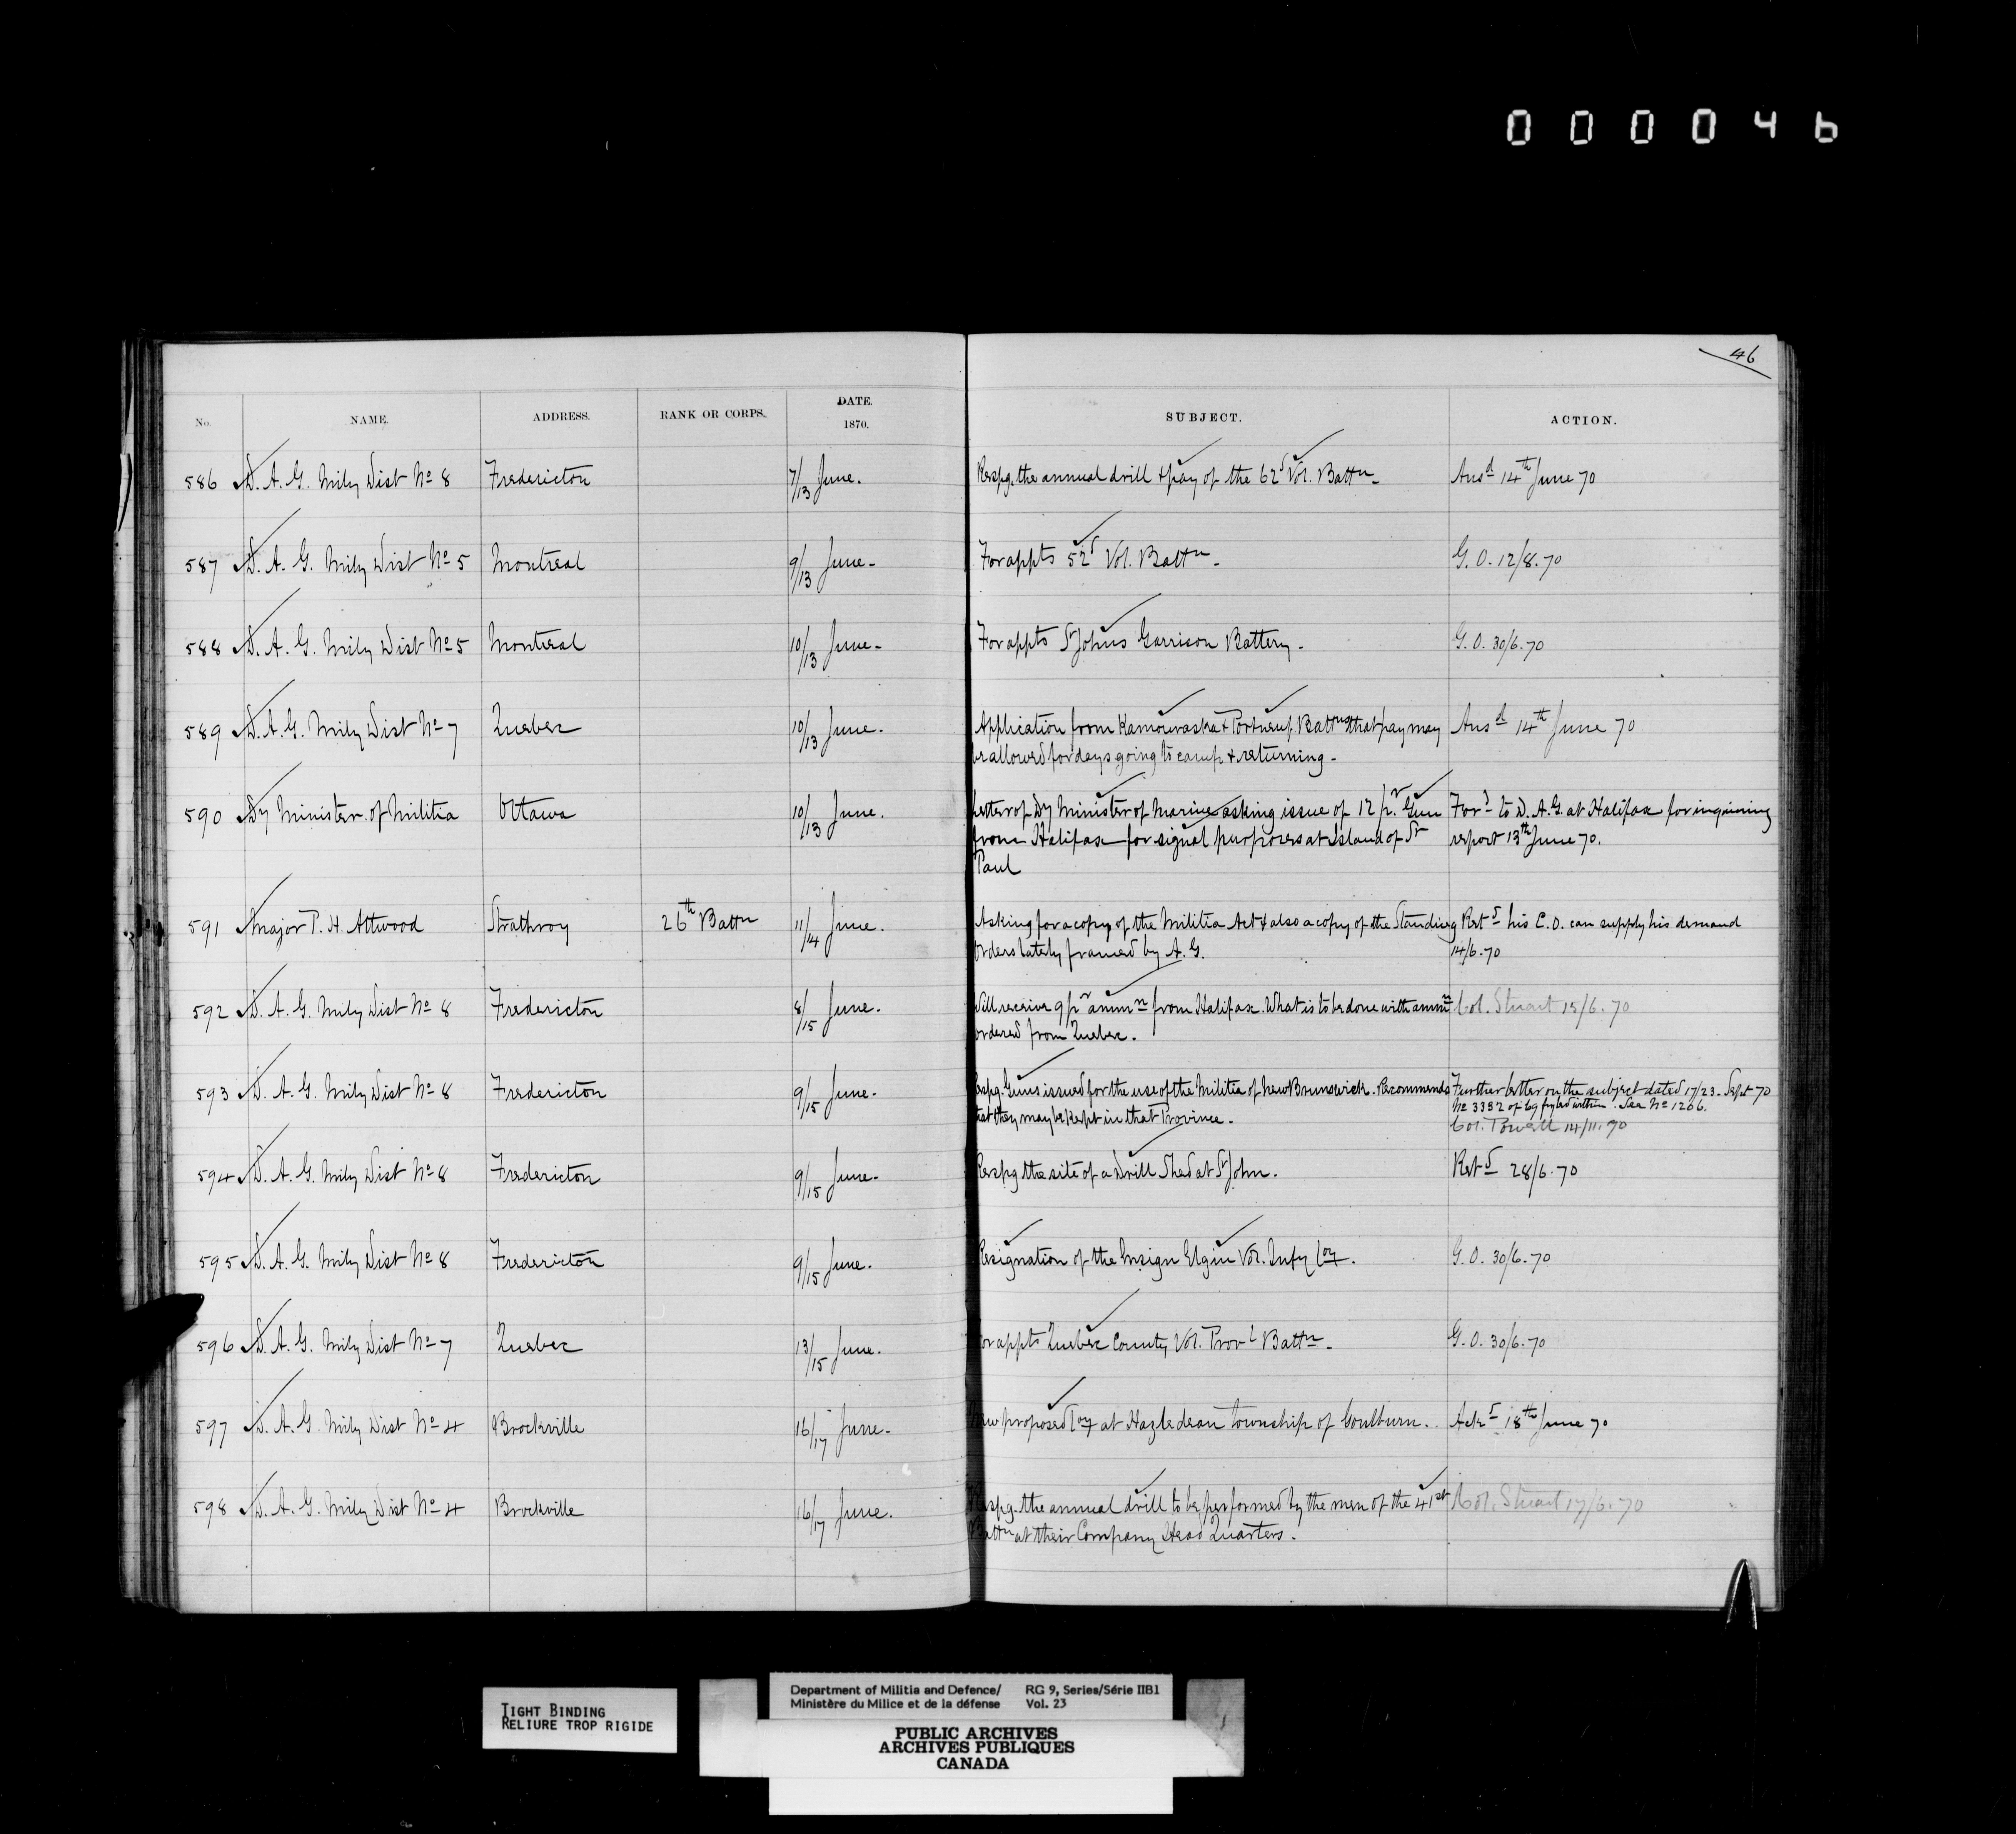 000046
46
No. NAME. ADDRESS. RANK OR CORPS. DATE. 1870. SUBJECT. ACTION.
586 D. A. G. Mily Dist No 8 Fredericton 7/13 June. Respg. the annual drill & pay of the 62d Vol. Battn. Ansd 14th June 70
587 D. A. G. Mily Dist No 5 Montreal 9/13 June. For appts 52d Vol. Battn. G. O. 12/8.70
588 D. A. G. Mily Dist No 5 Montreal 10/13 June. For appts St Johns Garrison Battery. G. O. 30/6.70
589 D. A. G. Mily Dist No 7 Quebec 10/13 June. Application from Kamouraska & Portneuf Battns that pay may Ansd 14th June 70
be allowed for days going to camp & returning.
590 Dy Minister of Militia Ottawa 10/13 June. Letter of Dy Minister of Marine asking issue of 12 pr. Gun Ford to D. A. G. at Halifax for inquiring
from Halifax for signal purposes at Island of St report 13th June 70.
Paul
591 Major P. H. Attwood Strathroy 26th Battn 11/14 June. Asking for a copy of the Militia Act & also a copy of the Standing Retd his C. O. can supply his demand
Orders lately framed by A. G. 14/6.70
592 D. A. G. Mily Dist No 8 Fredericton 8/15 June. Will receive 9 pr ammn from Halifax. What is to be done with ammn Col. Stuart 15/6.70
ordered from Quebec.
593 D. A. G. Mily Dist No 8 Fredericton 9/15 June. Respg. Guns issued for the use of the Militia of New Brunswick. Recommends Further letter on the subject dated 17/23. Sept 70
that they may be kept in that Province. No 3352 of 69 fyled within. See No 1206.
Col. Powell 14/11.70
594 D. A. G. Mily Dist No 8 Fredericton 9/15 June. Respg the site of a Drill Shed at St John. Retd 28/6.70
595 D. A. G. Mily Dist No 8 Fredericton 9/15 June. Resignation of the Ensign Elgin Vol. Infy Coy. G. O. 30/6.70
596 D. A. G. Mily Dist No 7 Quebec 13/15 June. For appts Quebec County Vol. Provl Battn. G. O. 30/6.70
597 D. A. G. Mily Dist No 4 Brockville 16/17 June. New proposed Coy at Hazledean township of Goulburn. Ackd 18th June 70
598 D. A. G. Mily Dist No 4 Brockville 16/17 June. Respg. the annual drill to be performed by the men of the 41st Col. Stuart 17/6.70
Battn at their Company Head Quarters.
TIGHT BINDING
RELIURE TROP RIGIDE
Department of Militia and Defence/ RG 9, Series/Série IIB1
Ministère du Milice et de la défense Vol. 23
PUBLIC ARCHIVES
ARCHIVES PUBLIQUES
CANADA